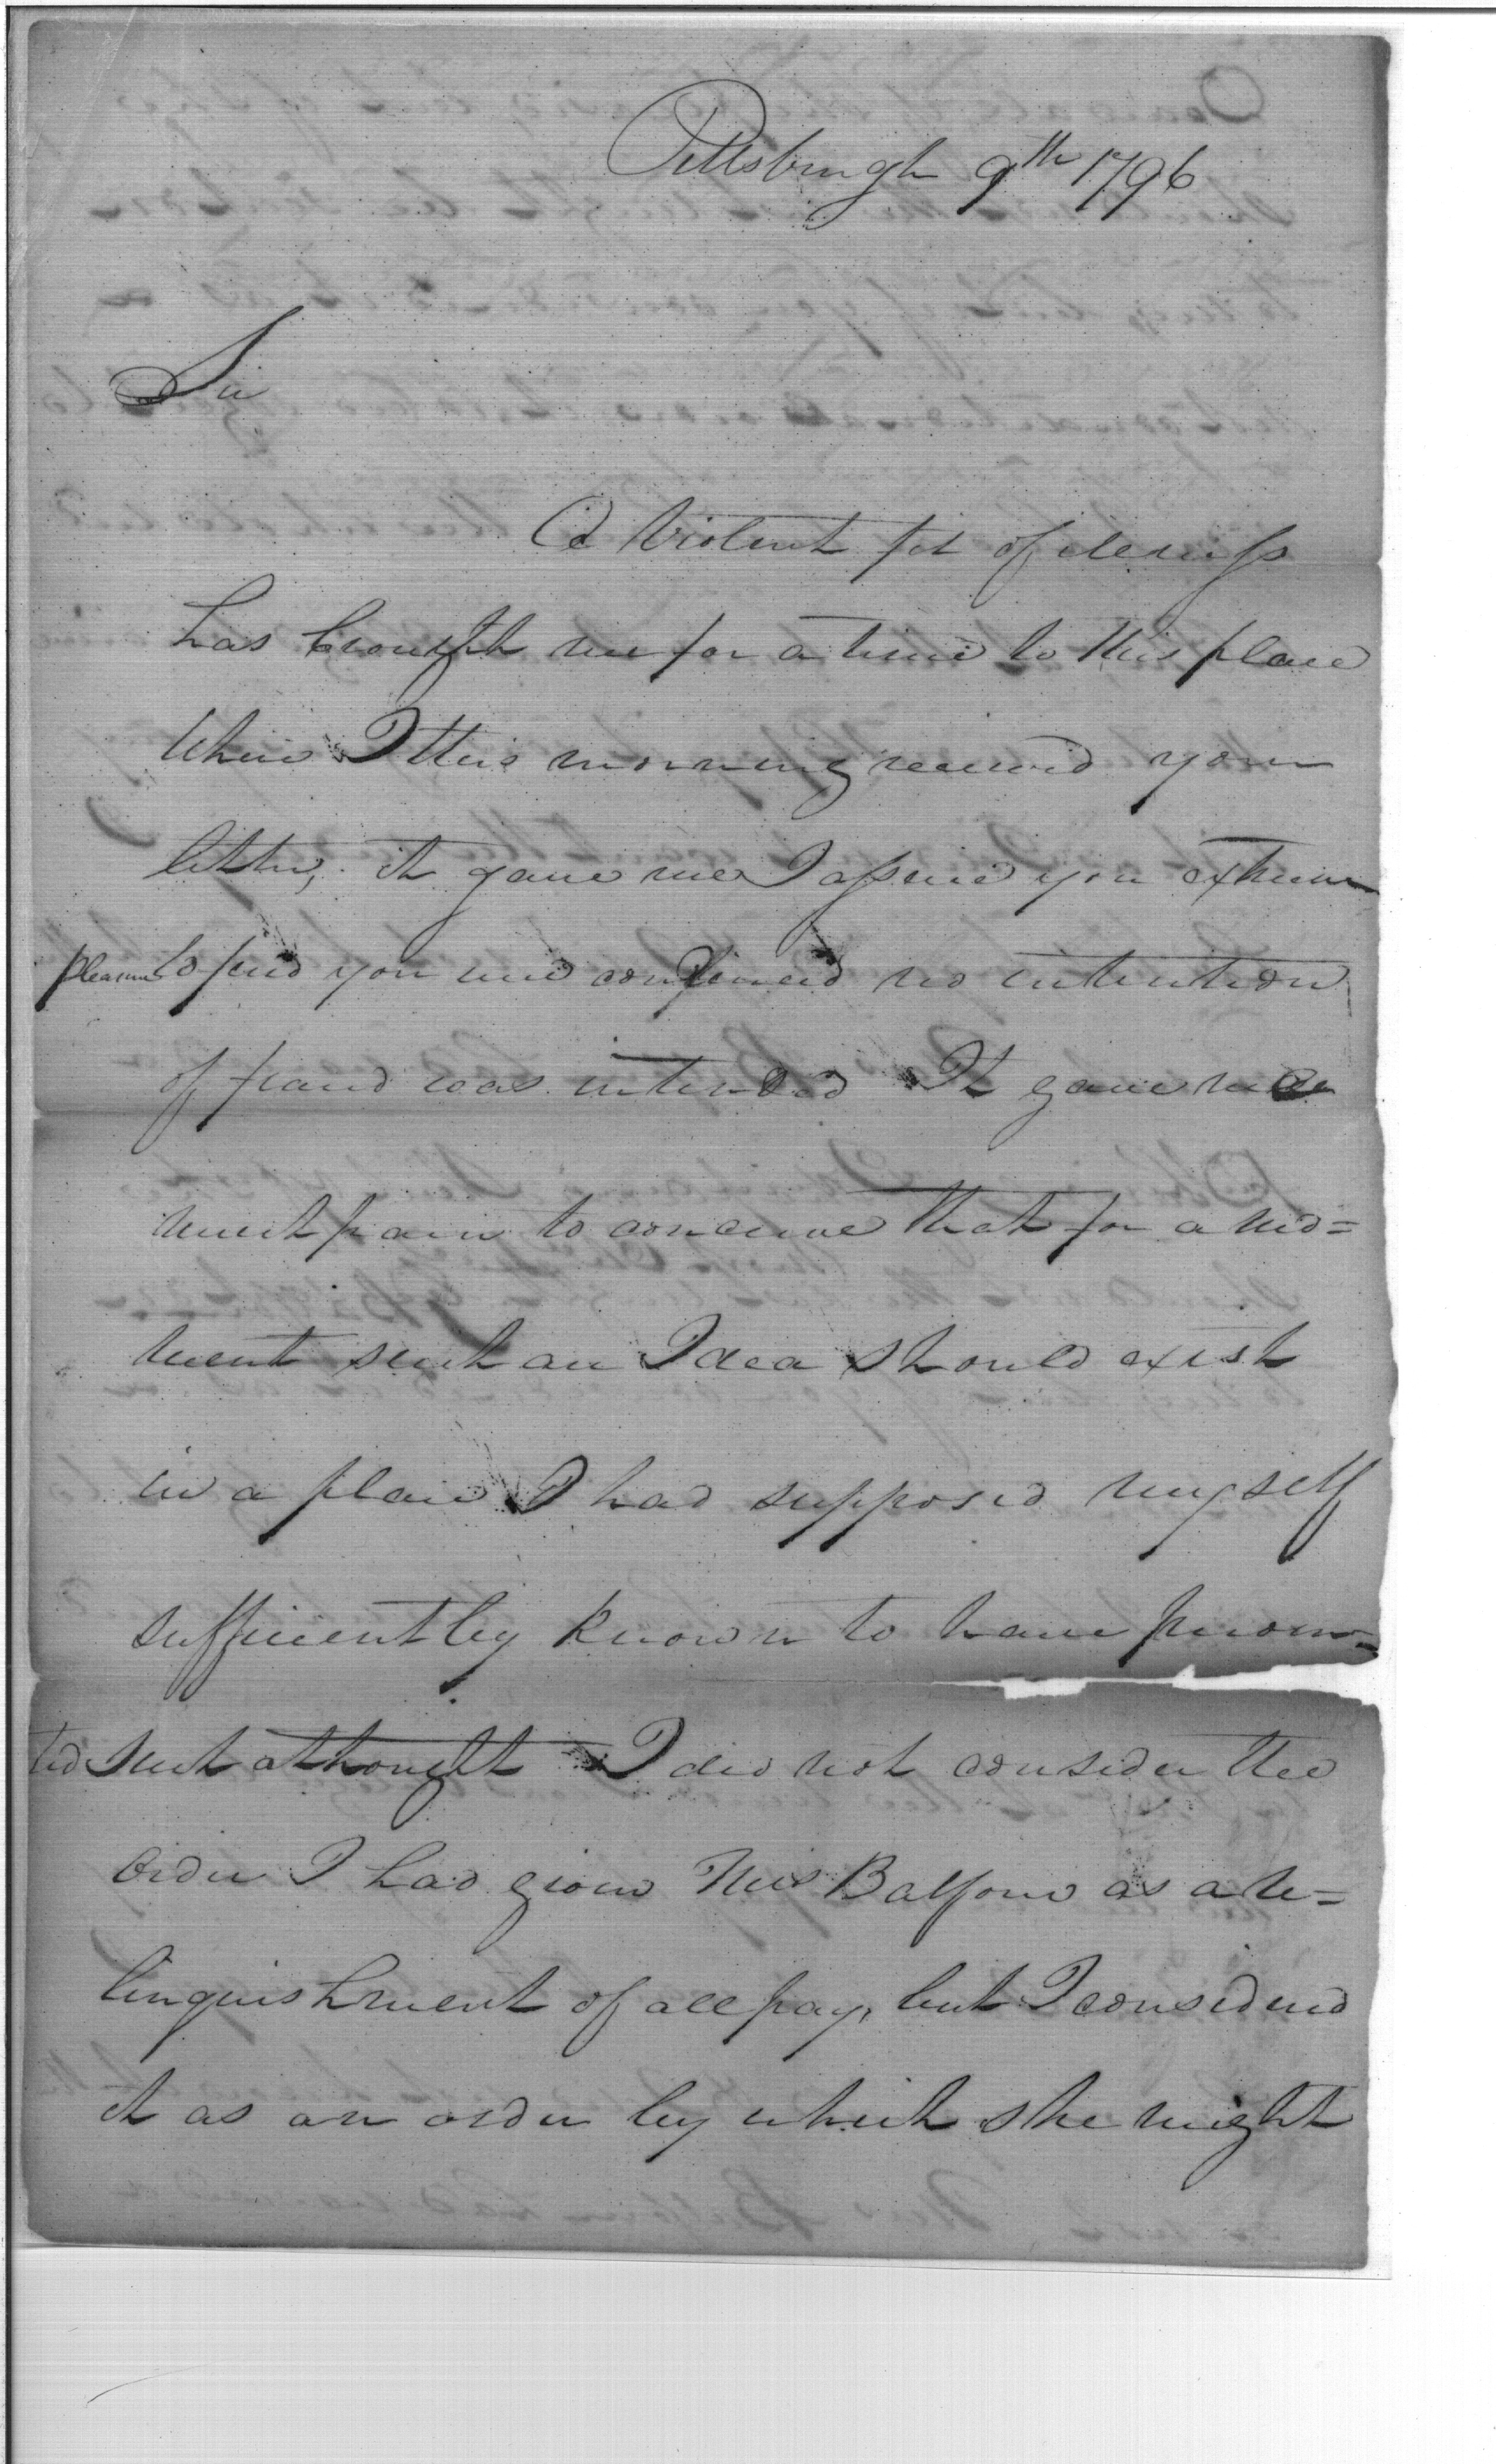 Pittsburgh 9th 1796
Sir
A Violent fit of illness
has brought me for a time to this place
where I this morning received your
letter, it gave me I assure you extreme
pleasure to find you were convinced no intention
of fraud was intended It gave me
much pain to conceive that for a mo=
ment such an Idea should exist
in a place I had supposed myself
sufficiently known to have preven=
ted such a thought I did not consider the
order I had given Mrs Balfour as a re=
linquishment of all pay, but I considered
it as an order by which she might